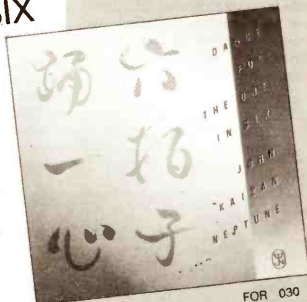 SIX
六拍子
踊一心
DANCE
FOR
THE ONE
IN SIX
JOHN
KAIZAN
NEPTUNE
FOR 030